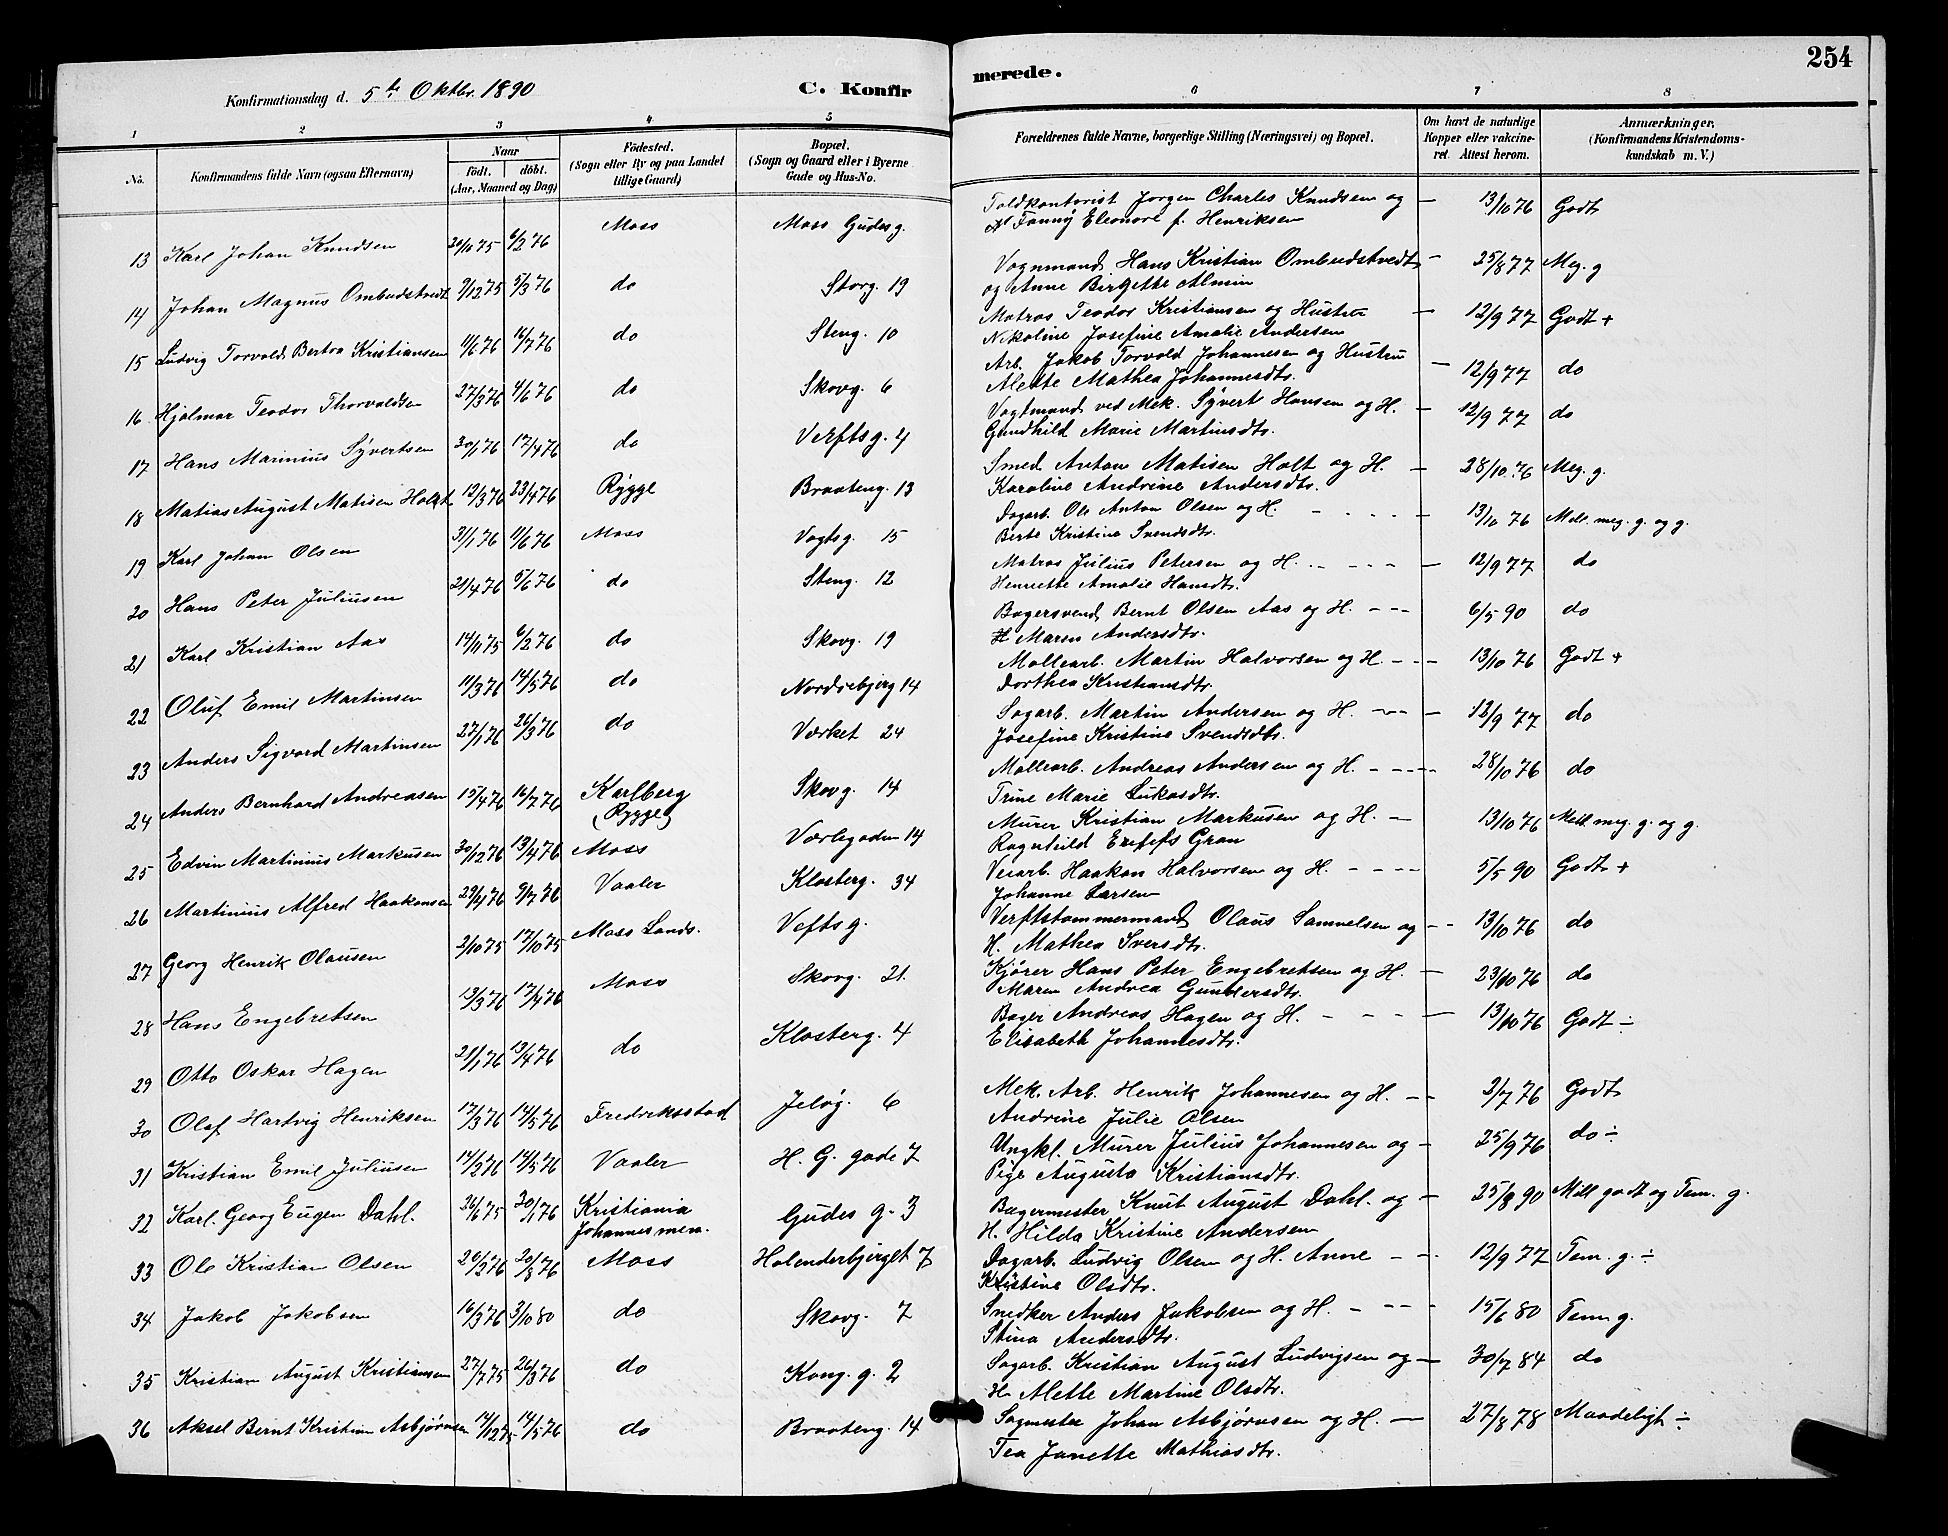 254
Konfirmationsdag d. 5te Oktbr. 1890 C. Konfir merede.
1 2 3 4 5 6 7 8
No. Konfirmandens fulde Navn (ogsaa Efternavn) Naar födt. döbt. (Aar, Maaned og Dag) Födested. (Sogn eller By og paa Landet tillige Gaard) Bopæl. (Sogn og Gaard eller i Byerne Gade og Hus-No. Forældrenes fulde Navne, borgerlige Stilling (Næringsvei) og Bopæl. Om havt de naturlige Kopper eller vakcineret. Attest herom. Anmærkninger, (Konfirmandens Kristendomskundskab m. V.)
13 Karl Johan Knudsen 20/11 75 6/2 76 Moss Moss Gudes g. Toldkontorist Jørgen Charles Knudsen og — 13/10 76 Godt
H Fanny Eleonore f. Henriksen
14 Johan Magnus Ombudstvedt 9/12 75 5/3 76 do Storg. 19 Vognmand Hans Kristian Ombudstvedt — 25/8 77 Meg. g
og Anne Birgitte Almin
15 Ludvig Torvald Berton Kristiansen 11/6 76 16/7 76 do Steng. 10 Matros Teodor Kristiansen og Hustru — 12/9 77 Godt +
Nikoline Josefine Amalie Andersen
16 Hjalmar Teodor Thorvaldsen 27/3 76 4/6 76 do Skovg. 6 Arb. Jakob Torvald Johannesen og Hustru — 12/9 77 do
Alette Mathea Johannesdtr.
17 Hans Marinius Syvertsen 30/1 76 17/4 76 do Verftsg. 4 Vagtmand ved Mek. Syvert Hansen og H. — 12/9 77 do
Gundhild Marie Martinsdtr.
18 Matias August Matisen Holt 12/3 76 23/4 76 Rygge Braateng. 13 Smed Anton Matisen Holt og H. — 28/10 76 Meg. g.
Karoline Andrine Andersdtr.
19 Karl Johan Olsen 31/1 76 11/6 76 Moss Vogtsg. 15 Dagarb. Ole Anton Olsen og H. — 13/10 76 Mell. meg. g. og g.
Berte Kristine Svendsdtr.
20 Hans Peter Juliusen 21/4 76 5/6 76 do Steng. 12 Matros Julius Petersen og H. — 12/9 77 do
Henriette Amalie Hansdtr.
21 Karl Kristian Aas 14/11 75 6/2 76 do Skovg. 19 Bagersvend Bernt Olsen Aas og H. — 6/5 90 do
H Maren Andersdtr.
22 Oluf Emil Martinsen 11/3 76 14/5 76 do Nordrebjerg 14 Møllearb. Martin Halvorsen og H. — 13/10 76 Godt +
Dorthea Kristiansdtr.
23 Anders Sigvard Martinsen 27/1 76 26/3 76 do Værket 24 Sagarb. Martin Andersen og H. — 12/9 77 do
Josefine Kristine Svendsdtr.
24 Anders Bernhard Andreasen 15/4 76 16/7 76 Karlberg (Rygge) Skovg. 14 Møllearb. Andreas Andersen og H. — 28/10 76 do
Trine Marie Lukasdtr.
25 Edvin Martinius Markusen 30/12 76 13/4 76 Moss Værlegaden 14 Murer Kristian Markusen og H. — 13/10 76 Mell. meg. g. og g.
Ragnhild Gran
26 Martinius Alfred Haakonsen 29/4 76 9/7 76 Vaaler Klosterg. 34 Veiarb. Haakon Halvorsen og H. — 5/5 90 Godt +
Johanne Larsen
27 Georg Henrik Olausen 2/10 75 17/10 75 Moss Lands. Veftsg. Verftstømmermand Olaus Samuelsen og — 13/10 76 do
H. Mathea Sversdtr.
28 Hans Engebretsen 13/3 76 17/4 76 Moss Skovg. 21. Kjører Hans Peter Engebretsen og H. — 23/10 76 do
Maren Andrea Gundersdtr.
29 Otto Oskar Hagen 21/1 76 13/4 76 do Klosterg. 4 Bager Andreas Hagen og H. — 13/10 76 Godt ÷
Elisabeth Johannesdtr.
30 Olaf Hartvig Henriksen 17/3 76 14/5 76 Fredriksstad Jeløg. 6 Mek. Arb. Henrik Johannesen og H. — 2/7 76 Godt
Andrine Julie Olsen
31 Kristian Emil Juliusen 14/2 76 14/5 76 Vaaler H. G. gade 7 Ungkl. Murer Julius Johannesen og — 25/9 76 do ÷
Pige Augusta Kristiansdtr.
32 Karl Georg Eugen Dahl. 26/6 75 30/1 76 Kristiania Johannes men. Gudes g. 3 Bagermester Knut August Dahl. og — 25/8 90 Mell godt og Tem. g.
H. Hilda Kristine Andersen
33 Ole Kristian Olsen 20/2 76 20/8 76 Moss Holenderbjerget 7 Dagarb. Ludvig Olsen og H. Anne — 12/9 77 Tem. g. ÷
Kristine Olsdtr.
34 Jakob Jakobsen 16/3 76 3/10 80 do Skovg. 7 Snedker Anders Jakobsen og H. — 15/6 80 Tem. g.
Stina Andersdtr.
35 Kristian August Kristiansen 27/7 75 26/3 76 do Kong. g. 2 Sagarb. Kristian August Ludvigsen og — 30/7 84 do
H. Alette Martine Olsdtr.
36 Aksel Bernt Kristian Asbjørnsen 14/12 75 14/5 76 do Braateng. 14 Sagmester Johan Asbjørnsen og H. — 27/8 78 Maadeligt ÷
Tea Janette Mathiasdtr.